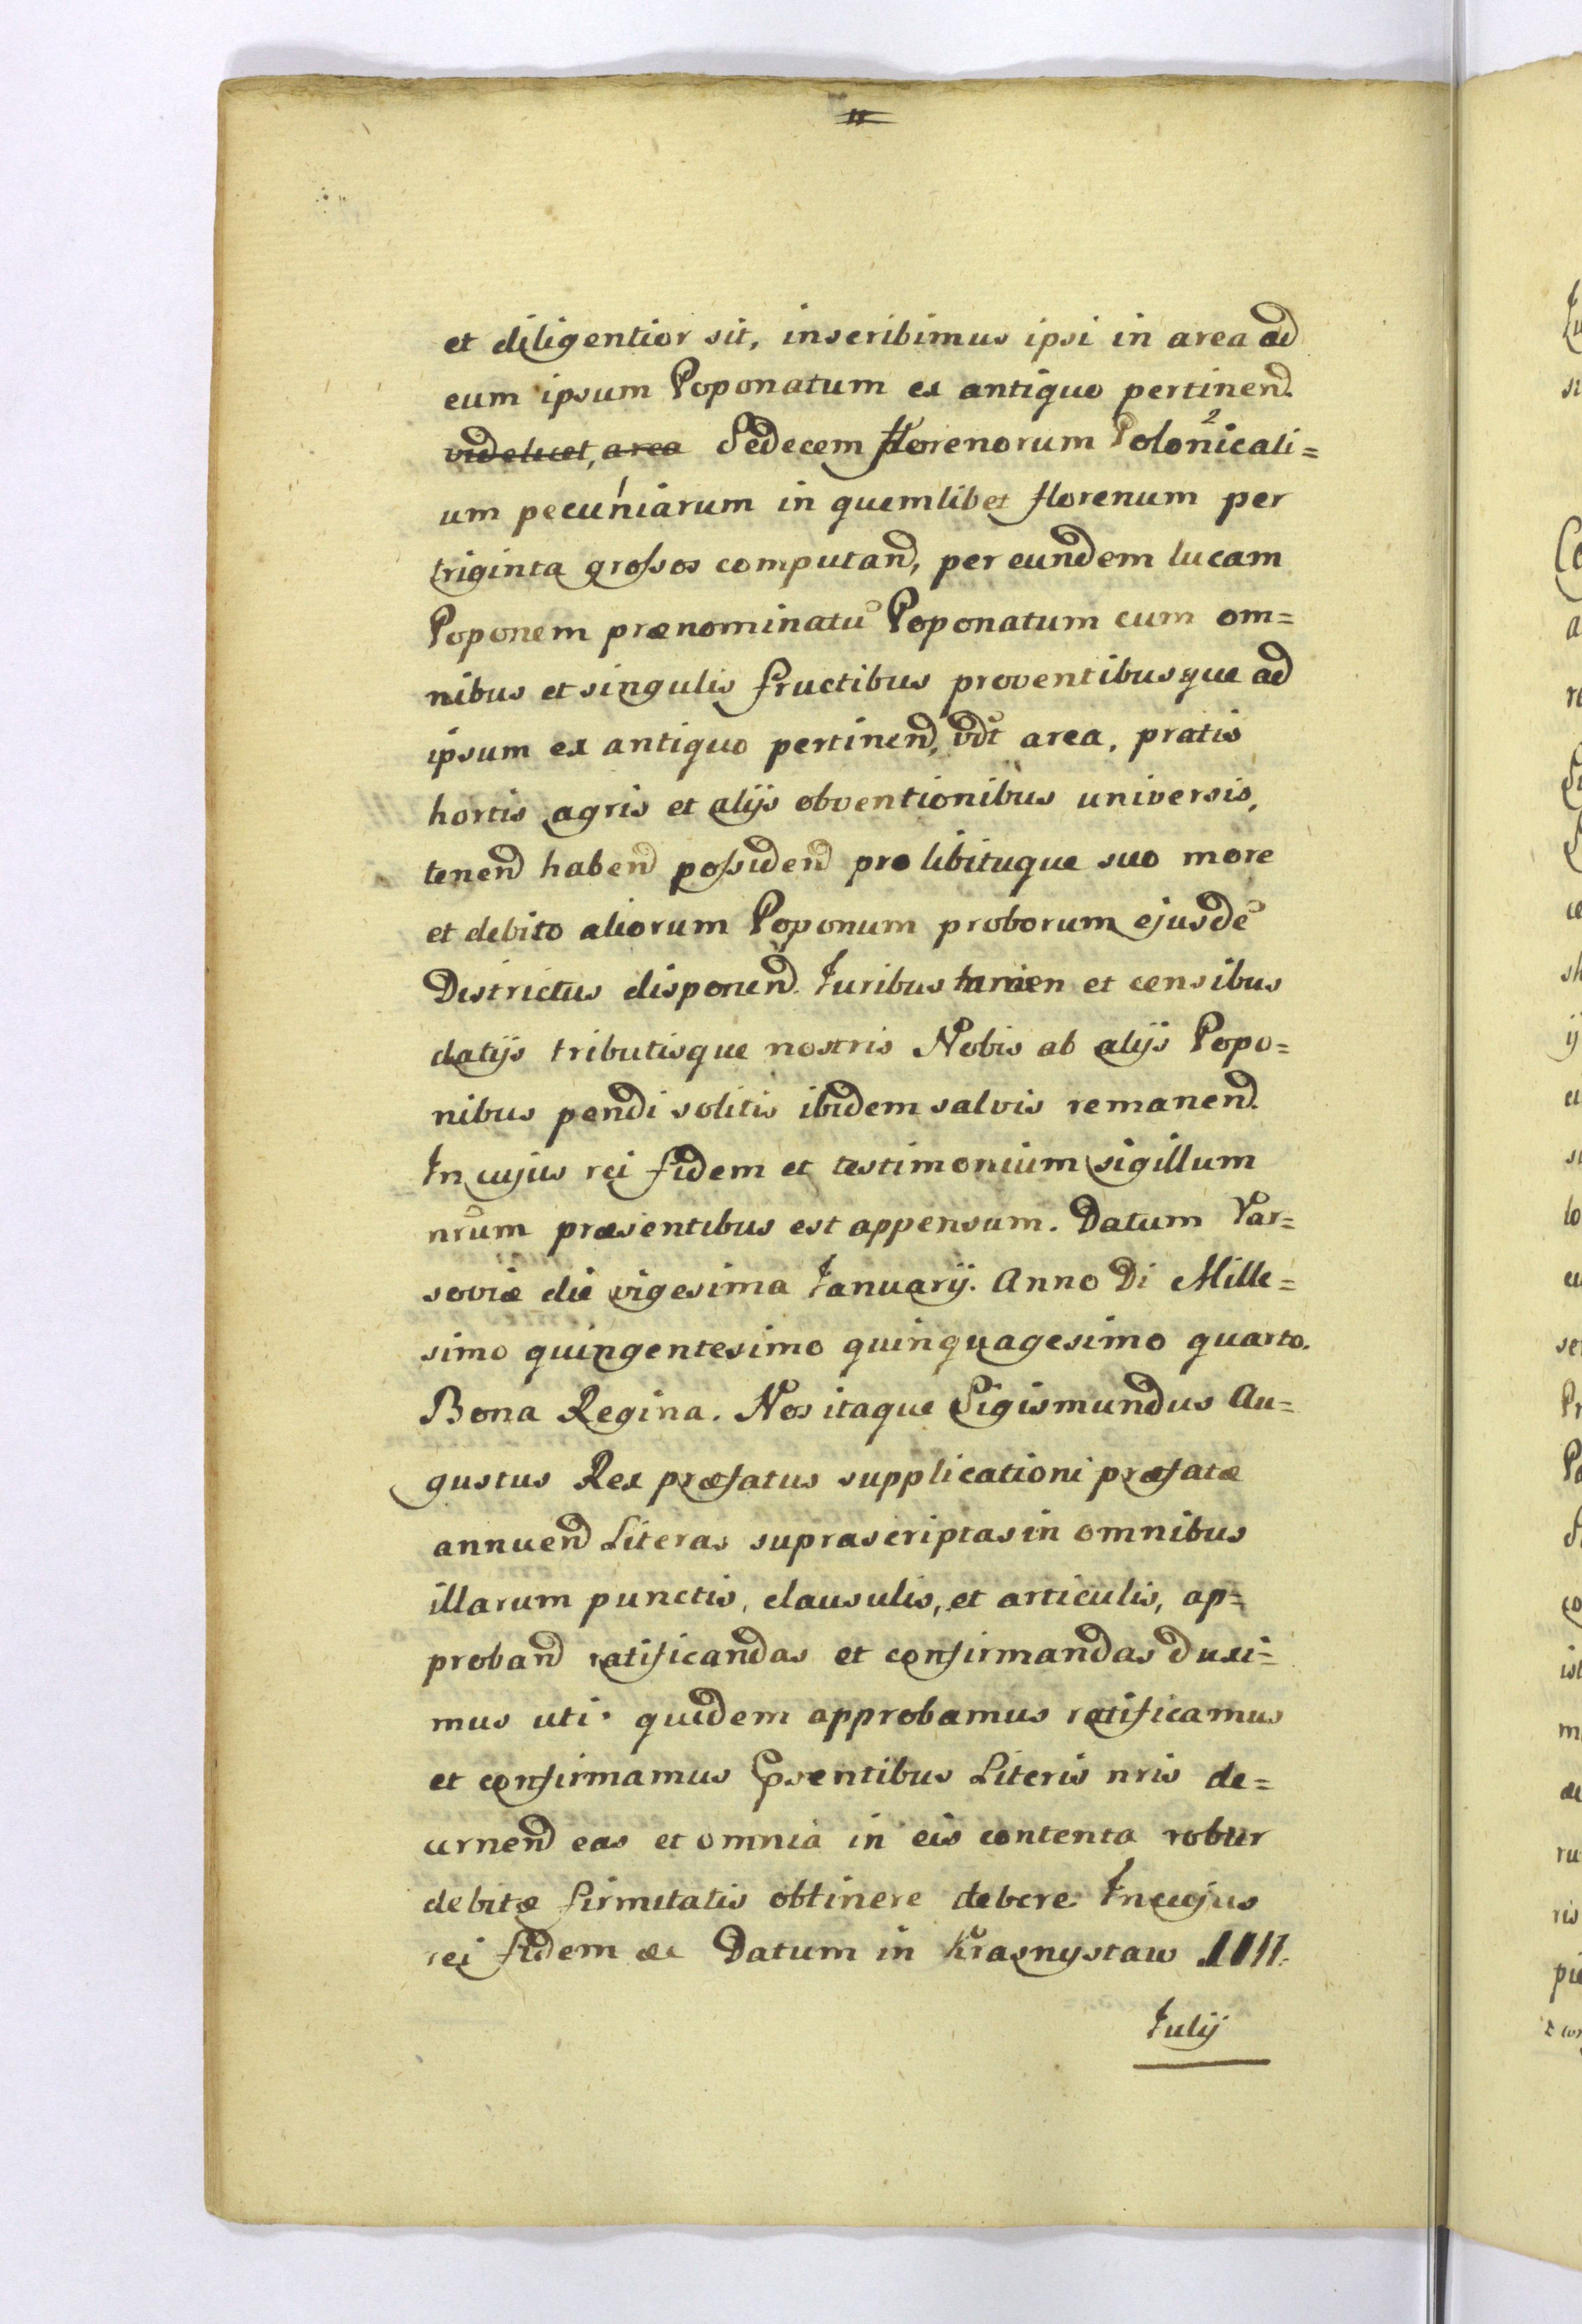 et diligentior sit, inscribimus ipsi in area ad
eum ipsum Poponatum ex antiquo pertinend.
videlicet, area Sedecem florenorum Polonicali=
um pecuniarum in quemlibet florenum per
triginta grossos computand, per eundem lucam
Poponem prænominatū Poponatum cum om=
nibus et singulis fructibus proventibusque ad
ipsum ex antiquo pertinend, vdt area, pratis
hortis agris et alijs obventionibus universis,
tenend habend possidend pro libituque suo more
et debito aliorum Poponum proborum ejusdē
Districtus disponend. Juribus tamen et censibus
datijs tributisque nostris Nobis ab alijs Popo=
nibus pendi solitis ibidem salvis remanend.
In cujus rei fidem et testimonium sigillum
nrum præsentibus est appensum. Datum Var=
soviæ die vigesima Januarij. Anno Di Mille=
simo quingentesimo quinquagesimo quarto.
Bona Regina. Nos itaque Sigismundus Au=
gustus Rex præfatus supplicationi præfatæ
annuend Literas suprascriptas in omnibus
illarum punctis, clausulis, et articulis, ap=
proband ratificandas et confirmandas duxi=
mus uti quidem approbamus ratificamus
et confirmamus psentibus Literis nris de=
cernend eas et omnia in eis contenta robur
debitæ firmitatis obtinere debere. In cujus
rei fidem &c Datum in Krasnystaw IIII.
Julij